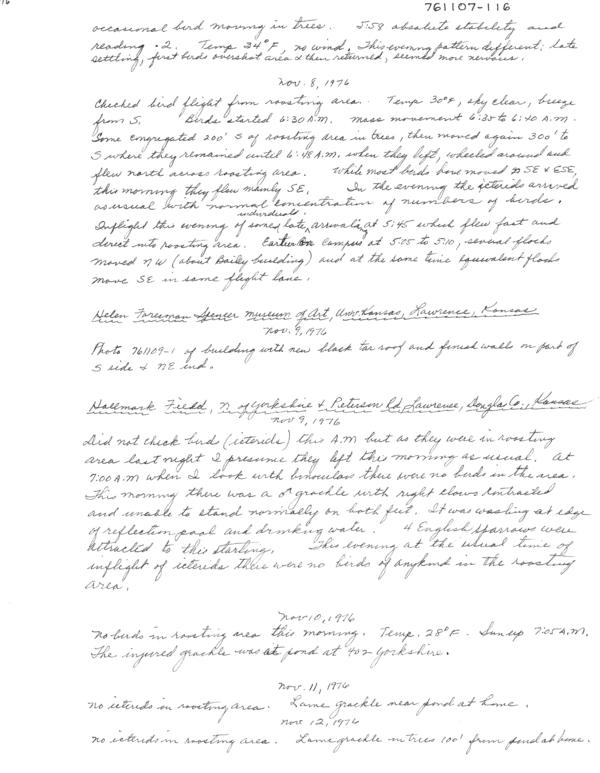 761107-116
occasional bird moving in trees. 5:59 absolute stability and
reading .2. Temp 34°F, no wind. This evening pattern different: late
settling, first birds overshot area & then returned, seemed more nervous.
Nov. 8, 1976
Checked bird flight from roosting area. Temp 30°F, sky clear, breeze
from S. Birds started 6:30 A.M. mass movement 6:35 to 6:40 A.M.
Some congregated 200' S of roosting area in trees, then moved again 300' to
S where they remained until 6:48 A.M. when they left, wheeled around and
flew north across roosting area. While most birds have moved SE & ESE,
this morning they flew mainly SE. In the evening the icterids arrived
as usual with normal concentration of numbers of birds.
individuals
Inflight this evening of some late arrivals at 5:45 which flew fast and
direct into roosting area. Earlier on campus at 5:05 to 5:10, several flocks
moved NW (about Bailey building) and at the same time equivalent flocks
move SE in same flight lane.
Helen Foresman Spencer Museum of Art, Univ Kansas, Lawrence, Kansas
Nov. 9, 1976
Photo 761109-1 of building with new black tar roof and finish walls on part of
S side & NE end.
Hallmark Field, N of Yorkshire & Peterson Rd, Lawrence, Douglas Co., Kansas
Nov 9, 1976
Did not check birds (icterids) this A.M but as they were in roosting
area last night I presume they left this morning as usual. At
7:00 A.M when I look with binoculars there were no birds in the area.
This morning there was a ♂ grackle with right claws contracted
and unable to stand normally on both feet. It was wading at edge
of reflection pool and drinking water. 4 English sparrows were
attracted to this starling. This evening at the usual time of
inflight of icterids there were no birds of any kind in the roosting
area.
Nov 10, 1976
No birds in roosting area this morning. Temp. 28°F. Sun up 7:05 A.M.
The injured grackle was at pond at 402 Yorkshire.
Nov. 11, 1976
No icterids in roosting area. Lame grackle near pond at home.
Nov 12, 1976
No icterids in roosting area. Lame grackle in trees 100' from pond at home.